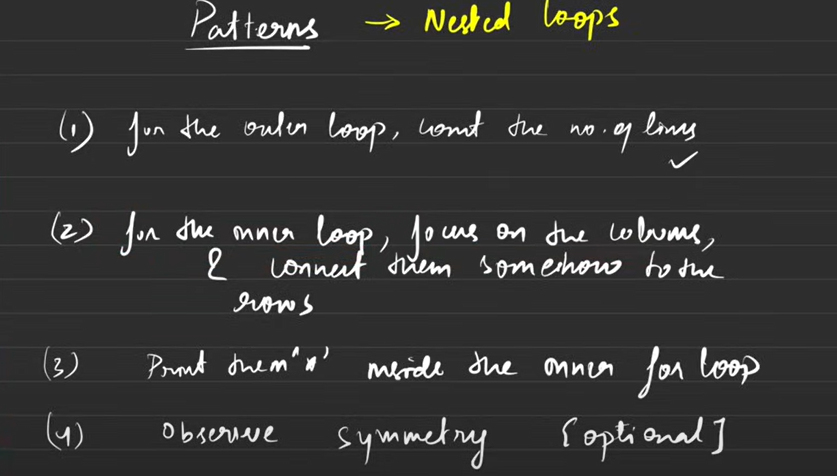 Patterns → Nested loops
(1) for the outer loop, count the no. of lines
(2) for the inner loop, focus on the columns,
& connect them somehow to the
rows
(3) Print them '*' inside the inner for loop
(4) Observe symmetry [optional]